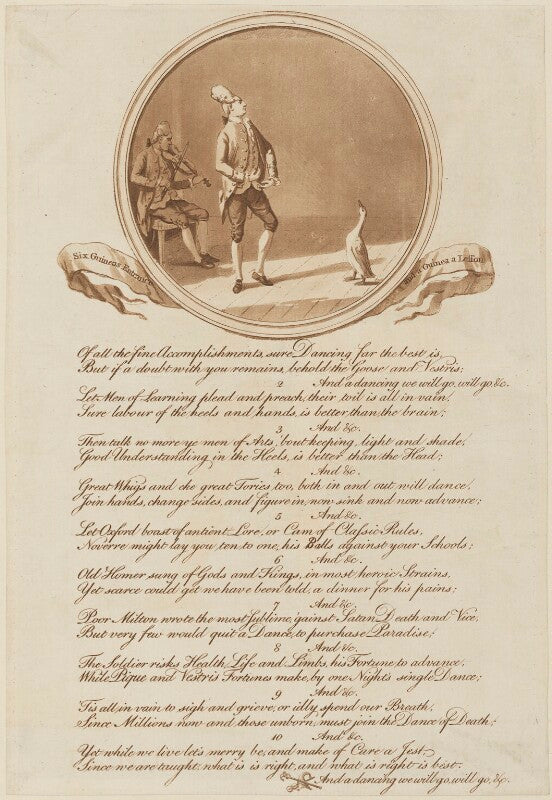 Six Guineas Entrance
a Guinea a Lesson
Of all the fine Accomplishments, sure Dancing far the best is,
But if a doubt with you remains, behold the Goose and Vestris;
2 And a dancing we will go, will go &c.
Let Men of Learning plead and preach, their toil is all in vain,
Sure labour of the heels and hands, is better than the brain;
3 And &c.
Then talk no more ye men of Arts, 'bout keeping light and shade,
Good Understanding in the Heels, is better than the Head;
4 And &c.
Great Whigs and eke great Tories too, both in and out, will dance,
Join hands, change sides, and figure in, now sink and now advance;
5 And &c.
Let Oxford boast of antient Lore, or Cam of Classic Rules,
Noverre might lay you ten to one, his Balls against your Schools;
6 And &c.
Old Homer sung of Gods and Kings, in most heroic Strains,
Yet scarce could get we have been told, a dinner for his pains;
7 And &c.
Poor Milton wrote the most sublime, 'gainst Satan Death and Vice,
But very few would quit a Dance, to purchase Paradise;
8 And &c.
The Soldier risks Health, Life and Limbs, his Fortune to advance,
While Pique and Vestris Fortunes make, by one Nights single Dance;
9 And &c.
Tis all in vain to sigh and grieve, or idly spend our Breath,
Since Millions now and those unborn, must join the Dance of Death;
10 And &c.
Yet while we live let's merry be, and make of Care a Jest,
Since we are taught, what is is right, and what is right is best.
And a dancing we will go, will go, &c.